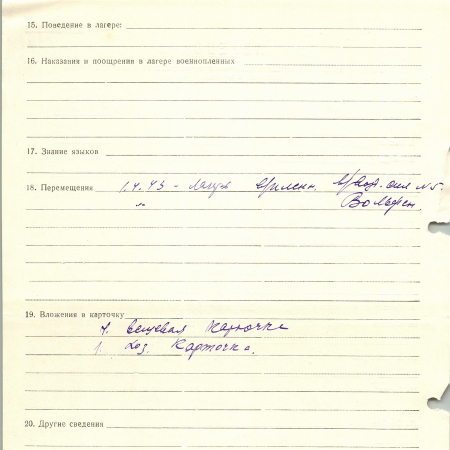 15. Поведение в лагере:
16. Наказания и поощрения в лагере военнопленных
17. Знание языков
18. Перемещения 1.4.43 - Лагерь №5.
" Вольфен.
19. Вложения в карточку
1. вещевая карточка
1. Хоз. карточка.
20. Другие сведения